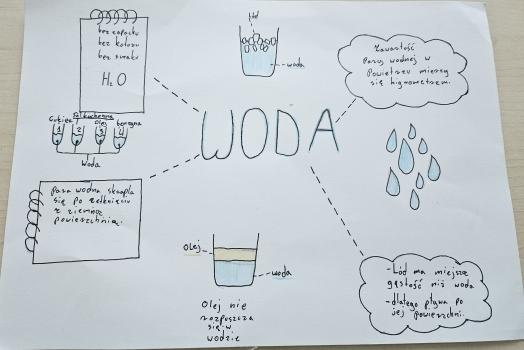 bez zapachu
bez koloru
bez smaku
H₂O
lód
woda
Zawartość
Pary wodnej w
Powietrzu mierzy
się higrometrem.
WODA
Cukier
Sól kuchenna
Olej
benzyna
1
2
3
4
Woda
Para wodna skrapla
się po zetknięciu
z zimną
powierzchnią.
Olej
woda
Olej nie
rozpuszcza
się w
wodzie
-Lód ma mniejszą
gęstość niż woda
-dlatego pływa po
jej powierzchni.